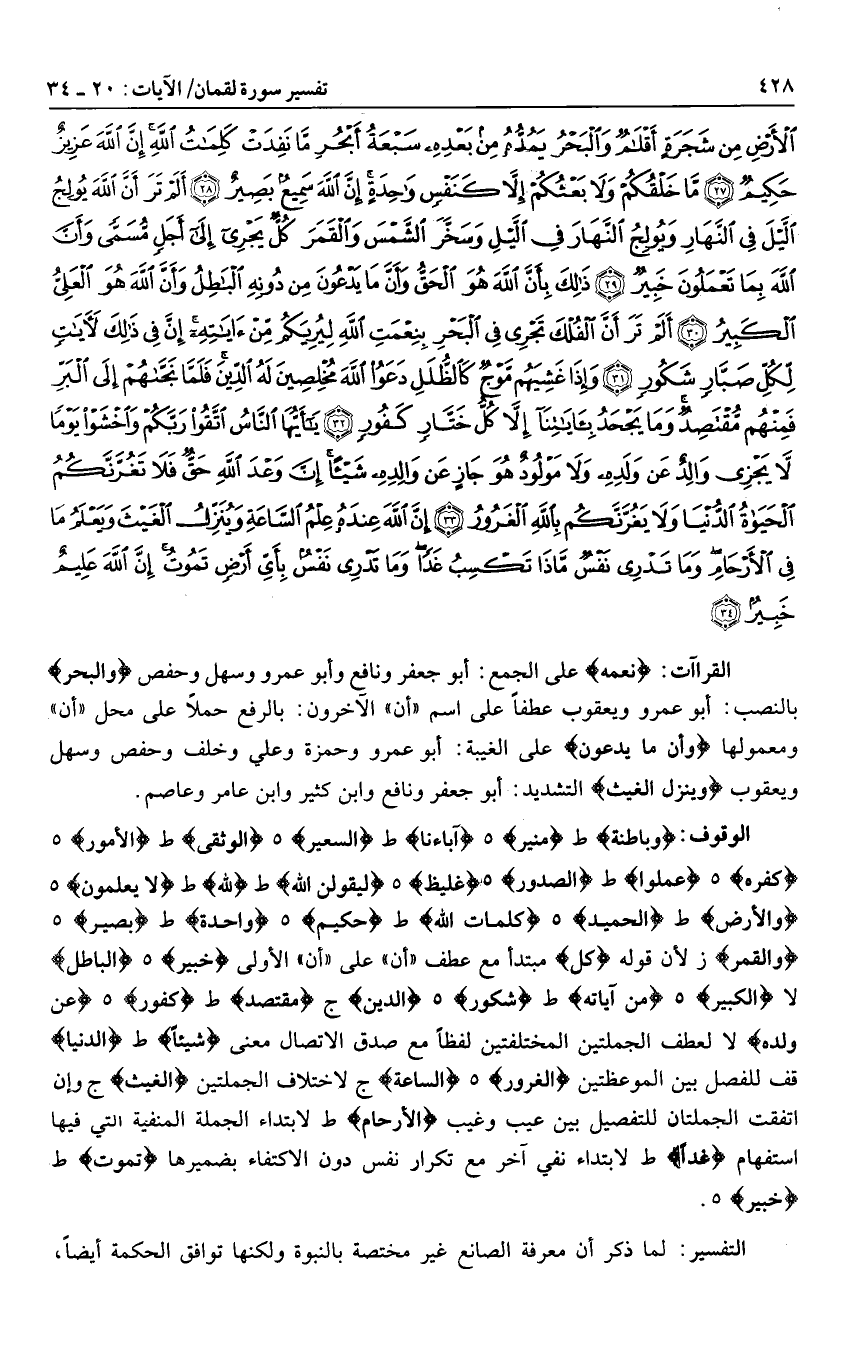 ٤٢٨
تفسير سورة لقمان/ الآيات: ٢٠ ـ ٣٤
ٱلْأَرْضِ مِن شَجَرَةٍ أَقْلَٰمٌ وَٱلْبَحْرُ يَمُدُّهُۥ مِنۢ بَعْدِهِۦ سَبْعَةُ أَبْحُرٍ مَّا نَفِدَتْ كَلِمَٰتُ ٱللَّهِ ۗ إِنَّ ٱللَّهَ عَزِيزٌ
حَكِيمٌ ٢٧ مَّا خَلْقُكُمْ وَلَا بَعْثُكُمْ إِلَّا كَنَفْسٍ وَٰحِدَةٍ ۗ إِنَّ ٱللَّهَ سَمِيعٌۢ بَصِيرٌ ٢٨ أَلَمْ تَرَ أَنَّ ٱللَّهَ يُولِجُ
ٱلَّيْلَ فِى ٱلنَّهَارِ وَيُولِجُ ٱلنَّهَارَ فِى ٱلَّيْلِ وَسَخَّرَ ٱلشَّمْسَ وَٱلْقَمَرَ كُلٌّ يَجْرِىٓ إِلَىٰٓ أَجَلٍ مُّسَمًّى وَأَنَّ
ٱللَّهَ بِمَا تَعْمَلُونَ خَبِيرٌ ٢٩ ذَٰلِكَ بِأَنَّ ٱللَّهَ هُوَ ٱلْحَقُّ وَأَنَّ مَا يَدْعُونَ مِن دُونِهِ ٱلْبَٰطِلُ وَأَنَّ ٱللَّهَ هُوَ ٱلْعَلِىُّ
ٱلْكَبِيرُ ٣٠ أَلَمْ تَرَ أَنَّ ٱلْفُلْكَ تَجْرِى فِى ٱلْبَحْرِ بِنِعْمَتِ ٱللَّهِ لِيُرِيَكُم مِّنْ ءَايَٰتِهِۦٓ ۚ إِنَّ فِى ذَٰلِكَ لَءَايَٰتٍ
لِّكُلِّ صَبَّارٍ شَكُورٍ ٣١ وَإِذَا غَشِيَهُم مَّوْجٌ كَٱلظُّلَلِ دَعَوُا۟ ٱللَّهَ مُخْلِصِينَ لَهُ ٱلدِّينَ فَلَمَّا نَجَّىٰهُمْ إِلَى ٱلْبَرِّ
فَمِنْهُم مُّقْتَصِدٌ ۚ وَمَا يَجْحَدُ بِـَٔايَٰتِنَآ إِلَّا كُلُّ خَتَّارٍ كَفُورٍ ٣٢ يَٰٓأَيُّهَا ٱلنَّاسُ ٱتَّقُوا۟ رَبَّكُمْ وَٱخْشَوْا۟ يَوْمًا
لَّا يَجْزِى وَالِدٌ عَن وَلَدِهِۦ وَلَا مَوْلُودٌ هُوَ جَازٍ عَن وَالِدِهِۦ شَيْـًٔا ۚ إِنَّ وَعْدَ ٱللَّهِ حَقٌّ ۖ فَلَا تَغُرَّنَّكُمُ
ٱلْحَيَوٰةُ ٱلدُّنْيَا وَلَا يَغُرَّنَّكُم بِٱللَّهِ ٱلْغَرُورُ ٣٣ إِنَّ ٱللَّهَ عِندَهُۥ عِلْمُ ٱلسَّاعَةِ وَيُنَزِّلُ ٱلْغَيْثَ وَيَعْلَمُ مَا
فِى ٱلْأَرْحَامِ ۖ وَمَا تَدْرِى نَفْسٌ مَّاذَا تَكْسِبُ غَدًا ۖ وَمَا تَدْرِى نَفْسٌۢ بِأَىِّ أَرْضٍ تَمُوتُ ۚ إِنَّ ٱللَّهَ عَلِيمٌ
خَبِيرٌۢ ٣٤
القراآت: ﴿نعمه﴾ على الجمع: أبو جعفر ونافع وأبو عمرو وسهل وحفص ﴿والبحر﴾
بالنصب: أبو عمرو ويعقوب عطفاً على اسم «أن» الآخرون: بالرفع حملاً على محل «أن»
ومعمولها ﴿وأن ما يدعون﴾ على الغيبة: أبو عمرو وحمزة وعلي وخلف وحفص وسهل
ويعقوب ﴿وينزل الغيث﴾ التشديد: أبو جعفر ونافع وابن كثير وابن عامر وعاصم.
الوقوف: ﴿وباطنة﴾ ط ﴿منير﴾ ٥ ﴿آباءنا﴾ ط ﴿السعير﴾ ٥ ﴿الوثقى﴾ ط ﴿الأمور﴾ ٥
﴿كفره﴾ ٥ ﴿عملوا﴾ ط ﴿الصدور﴾ ٥ ﴿غليظ﴾ ٥ ﴿ليقولن الله﴾ ط ﴿لله﴾ ط ﴿لا يعلمون﴾ ٥
﴿والأرض﴾ ط ﴿الحميد﴾ ٥ ﴿كلمات الله﴾ ط ﴿حكيم﴾ ٥ ﴿واحدة﴾ ط ﴿بصير﴾ ٥
﴿والقمر﴾ ز لأن قوله ﴿كل﴾ مبتدأ مع عطف «أن» على «أن» الأولى ﴿خبير﴾ ٥ ﴿الباطل﴾
لا ﴿الكبير﴾ ٥ ﴿من آياته﴾ ط ﴿شكور﴾ ٥ ﴿الدين﴾ ج ﴿مقتصد﴾ ط ﴿كفور﴾ ٥ ﴿عن
ولده﴾ لا لعطف الجملتين المختلفتين لفظاً مع صدق الاتصال معنى ﴿شيئاً﴾ ط ﴿الدنيا﴾
قف للفصل بين الموعظتين ﴿الغرور﴾ ٥ ﴿الساعة﴾ ج لاختلاف الجملتين ﴿الغيث﴾ ج وإن
اتفقت الجملتان للتفصيل بين عيب وغيب ﴿الأرحام﴾ ط لابتداء الجملة المنفية التي فيها
استفهام ﴿غداً﴾ ط لابتداء نفي آخر مع تكرار نفس دون الاكتفاء بضميرها ﴿تموت﴾ ط
﴿خبير﴾ ٥.
التفسير: لما ذكر أن معرفة الصانع غير مختصة بالنبوة ولكنها توافق الحكمة أيضاً،